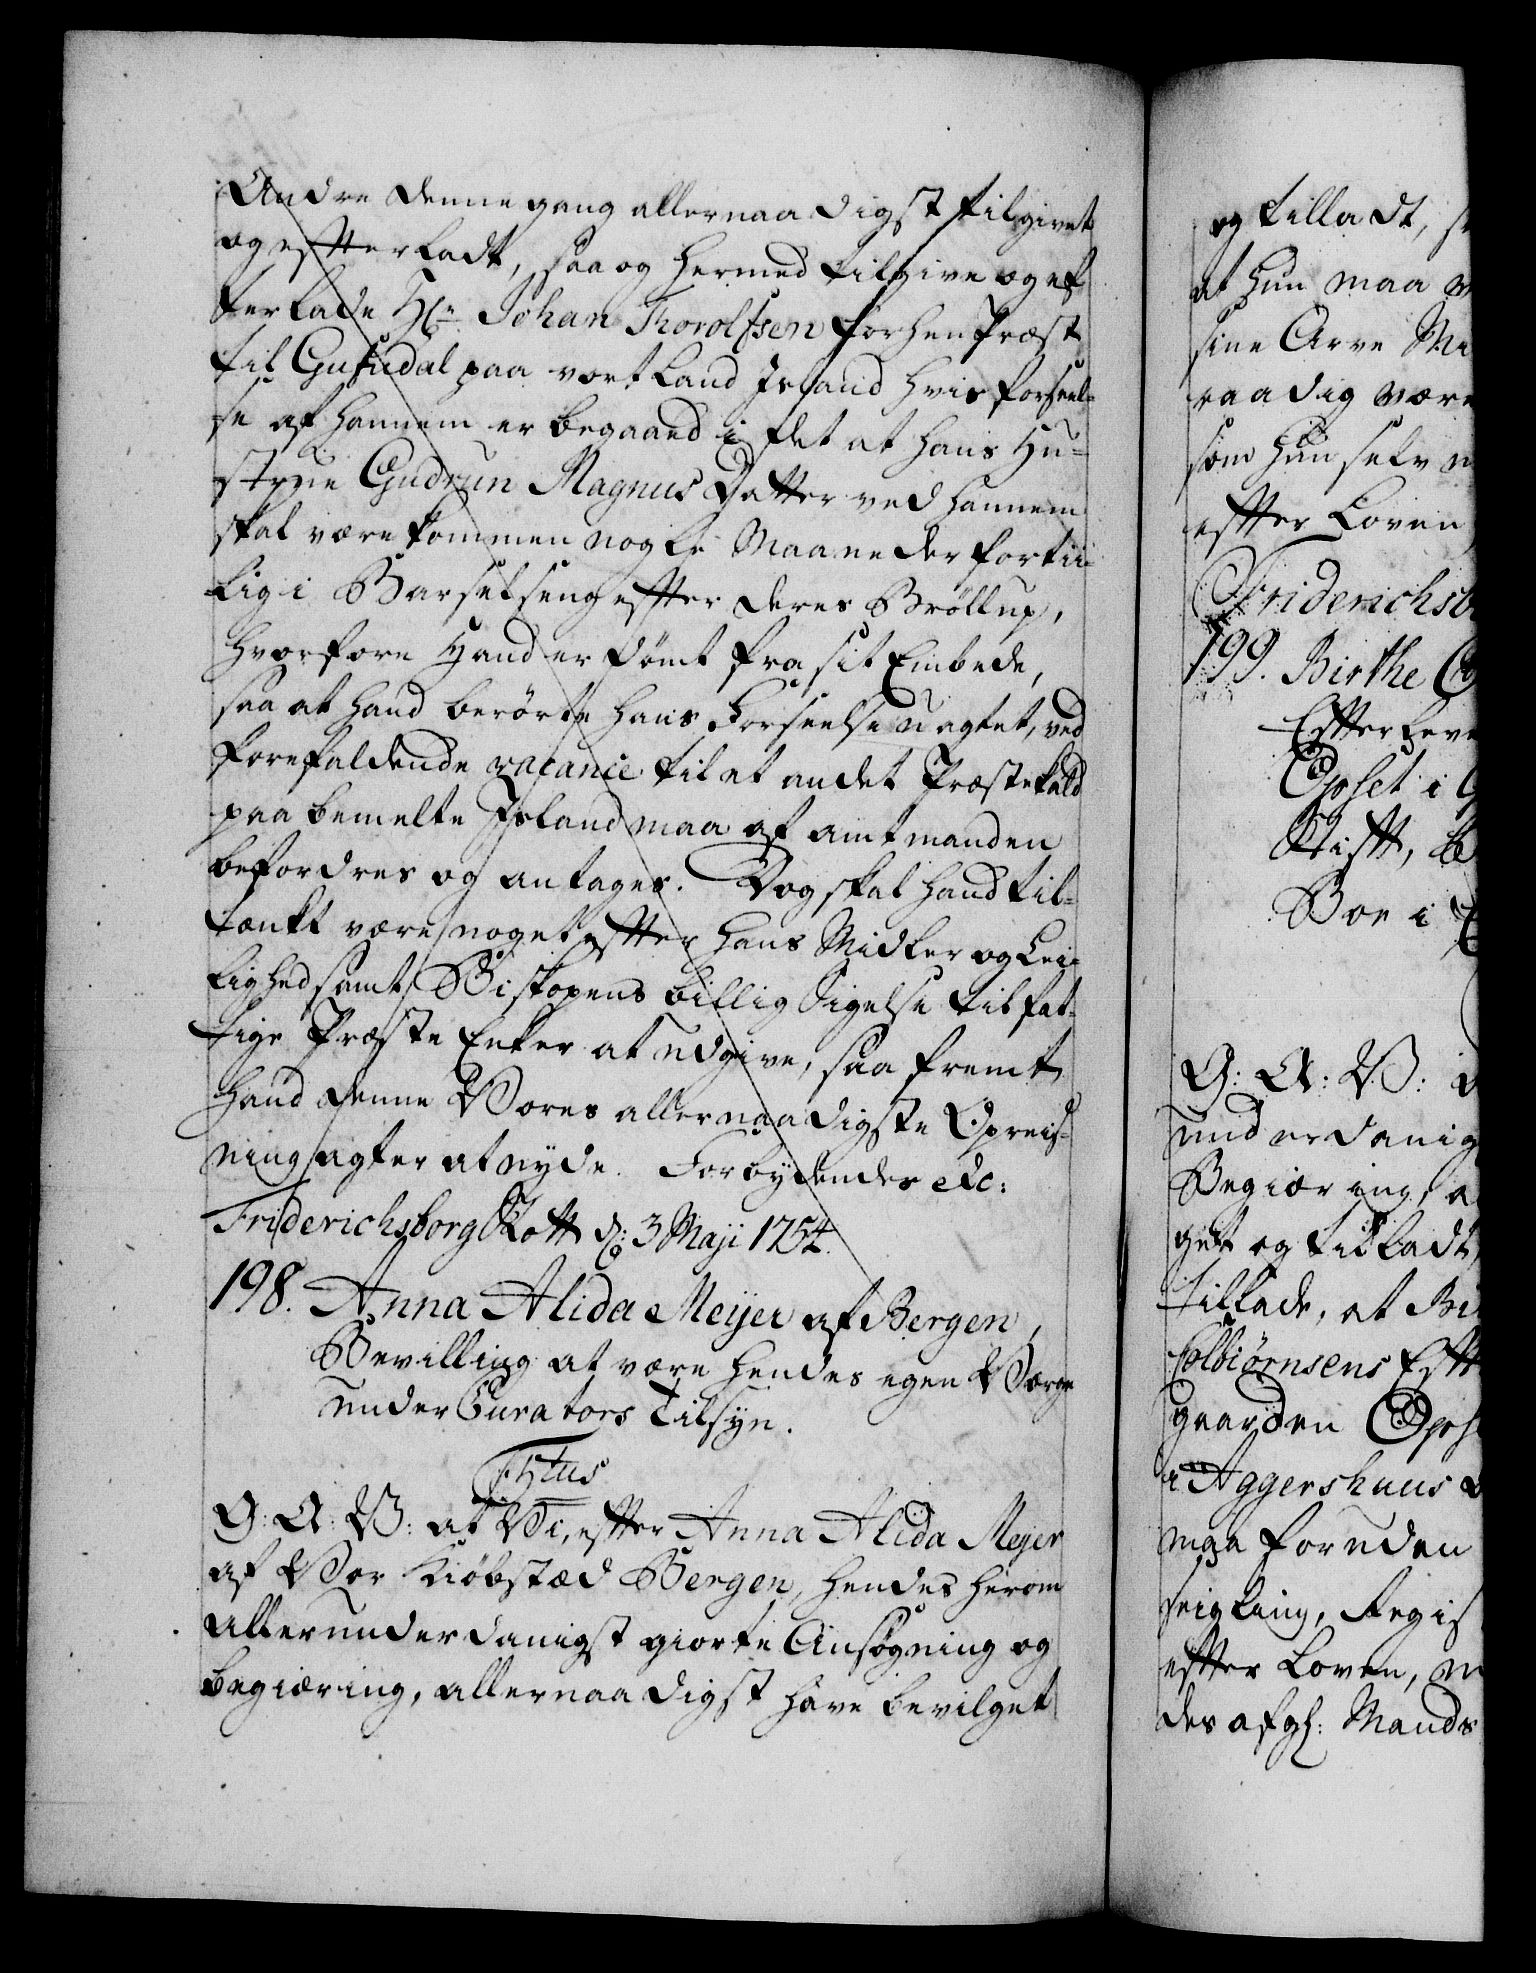 Andre denne gang allernaadigst tilgivet
og effterladt, saa og hermed tilgive og ef
terlade Hr. Johan Thorolfsen forhen Præst
til Gufudal paa vort Land Island hvis forseel-
se af hannem er begaaed i det at hans Hu-
strue Gudrun Magnus Datter ved hannem
skal være kommen nogle Maaneder fortii-
lig i Barselseng effter deres Bröllup,
hvorfore Hand er dömt fra sit Embede,
saa at hand berörte hans Forseelse uagtet, ved
forefaldende vacance til et andet Præstekald
paa bemelte Island maa af amtmanden
befordres og antages. Dog skal hand til-
tænkt være noget effter hans Midler og Lei-
lighed samt Biskopens billig Sigelse til fat-
tige Præste Enker at udgive, saa fremt
hand denne Vores allernaadigste Opreis-
ning agter at nyde. Forbydendes etc:
Friderichsborg Slott d: 3 Maji 1754.
198. Anna Alida Meyer af Bergen,
Bevilling at være hendes egen Værge
under Curators Tilsyn.
F5tus
G: A: V: at Vi, effter Anna Alida Meyer
af Vor Kiöbstæd Bergen, hendes herom
allerunderdanigst giorte Ansögning og
begiæring, allernaadigst have bevilget
og tilladt,
at hun maa
sine Arve Mi
raadig være
som hun selv
effter Loven
Friderichsb
199. Birthe
Effterleve
Opset i
Stifft,
Boe i
G: A: V:
underdanig
Begiæring, a
get og tilladt,
tillade, at Bi
Colbiörnsens Efft
gaarden Ops
i Aggershuus
maa foruden
seigling, Regis
effter Loven,
des afgl: Mands